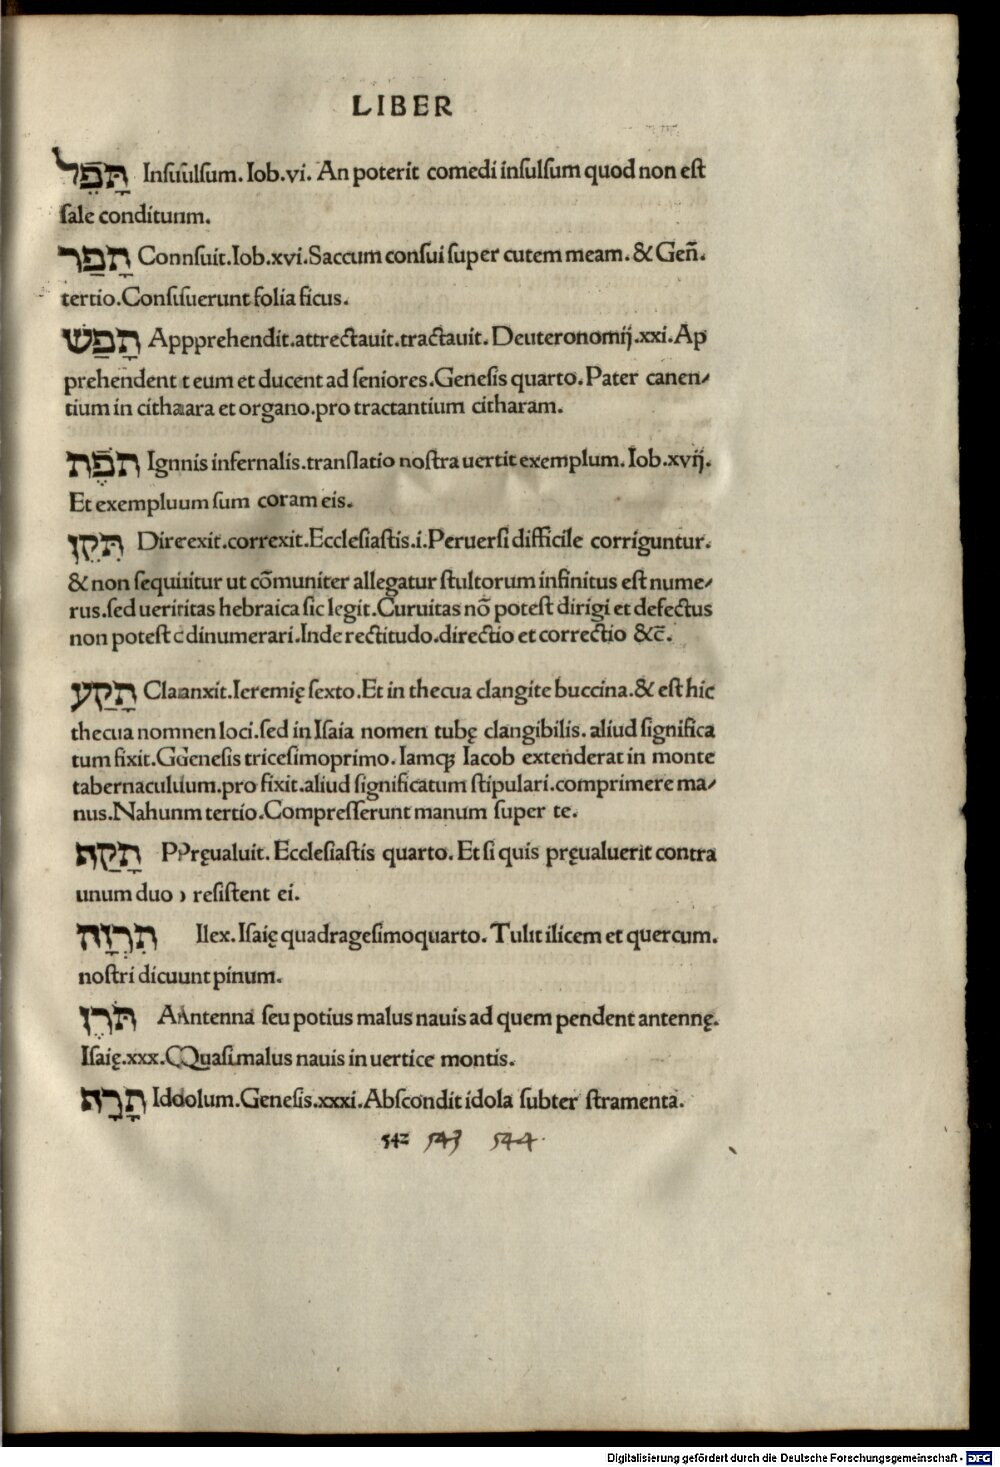 LIBER
תָּפֵל Insuulsum. Iob.vi. An poterit comedi insulsum quod non est
sale conditum.
תָּפַר Connsuit.Iob.xvi.Saccum consui super cutem meam.& Geñ.
tertio.Consisuerunt folia ficus.
תָּפַשׂ Appprehendit.attrectauit.tractauit.Deuteronomij.xxi.Ap
prehendent t eum et ducent ad seniores.Genesis quarto.Pater canen⸗
tium in cithaara et organo.pro tractantium citharam.
תֹּפֶת Ignnis infernalis.translatio nostra uertit exemplum.Iob.xvij.
Et exempluum sum coram eis.
תִּקֵן Direrexit.correxit.Ecclesiastis.i.Peruersi difficile corriguntur.
& non sequiuitur ut cõmuniter allegatur stultorum infinitus est nume⸗
rus.sed ueriritas hebraica sic legit.Curuitas nõ potest dirigi et defectus
non potest c dinumerari.Inde rectitudo.directio et correctio &c̃.
תָּקַע Claanxit.Ieremię sexto.Et in thecua clangite buccina.& est hic
thecua nomnen loci.sed in Isaia nomen tubę clangibilis.aliud significa
tum fixit.GGenesis tricesimoprimo.Iamqȝ Iacob extenderat in monte
tabernaculuum.pro fixit.aliud significatum stipulari.comprimere ma⸗
nus.Nahunm tertio.Compresserunt manum super te.
תָּקַף PPręualuit.Ecclesiastis quarto.Et si quis pręualuerit contra
unum duo ) resistent ei.
תִּרְזָה Ilex.Isaię quadragesimoquarto.Tulit ilicem et quercum.
nostri dicuunt pinum.
תֹּרֶן AAntenna seu potius malus nauis ad quem pendent antennę.
Isaię.xxx.QQuasi malus nauis in uertice montis.
תָּרָה Iddolum.Genesis.xxxi.Abscondit idola subter stramenta.
542 543 544
Digitalisierung gefördert durch die Deutsche Forschungsgemeinschaft - DFG